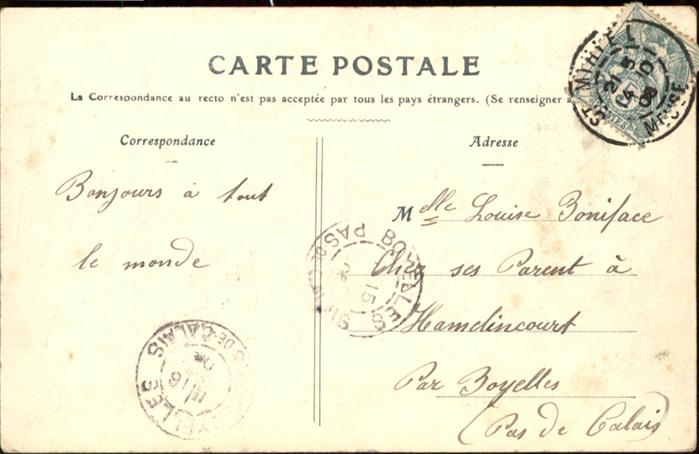 CARTE POSTALE
La Correspondance au recto n'est pas acceptée par tous les pays étrangers. (Se renseigner à
Correspondance
Adresse
Bonjours à tout
le monde
Melle Louise Boniface
Chez ses Parent à
Hamelincourt
Par Boyelles
(Pas de Calais)
ST MIHIEL
MEUSE
PAS-DE-CALAIS